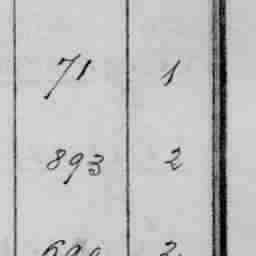 71 1
893 2